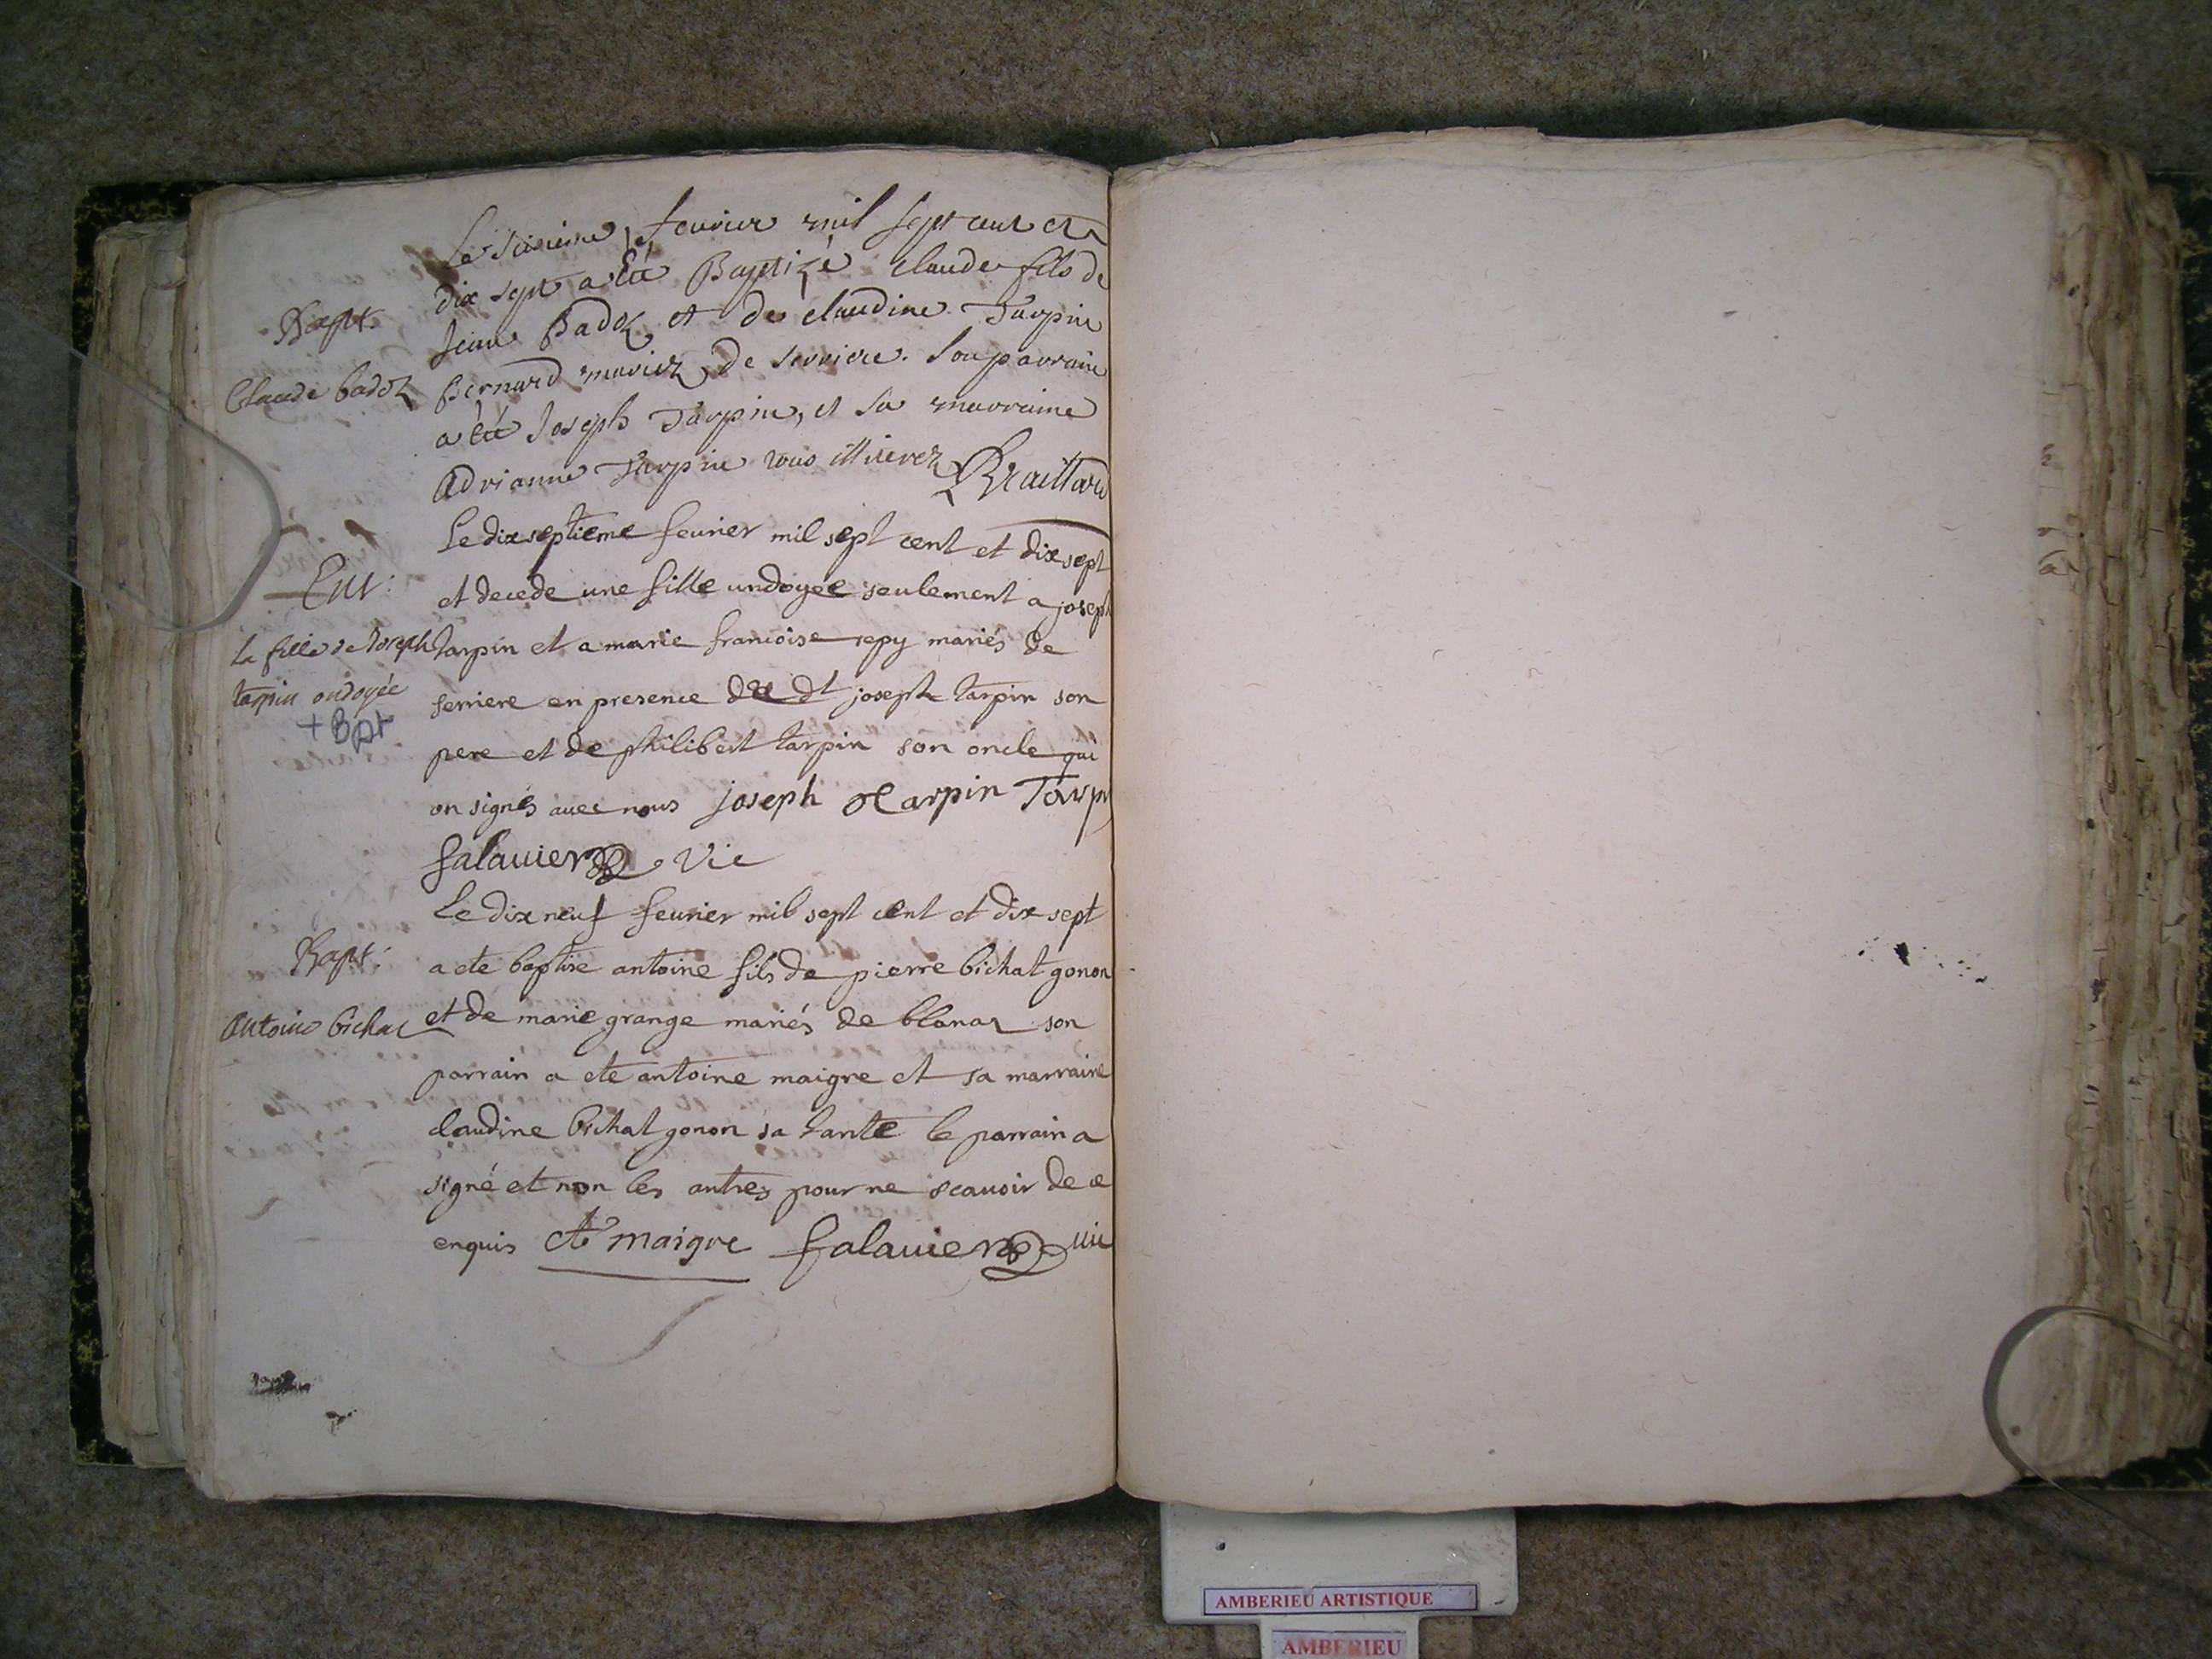 Le fevrier mil sept cent et
dix sept a été Baptizé claude fils de
Bapt.
Jean Badoz et de claudine Tarpin
Claude badoz
Bernard mariez de serriere. Son parrain
a été Joseph Tarpin, et sa marraine
Adrianne Tarpin tous illiterez Braillard
Le dixseptieme feurier mil sept cent et dixsept
Ent:
et decede une fille undoyée seulement a joseph
la fille de Joseph
tarpin ondoyée
+ Bpt
tarpin et a marie francoise repy mariés de
serriere en presence du dt joseph tarpin son
pere et de philibert tarpin son oncle qui
on signés avec nous joseph tarpin Tarpin
falauier Vic
Le dix neuf feurier mil sept cent et dix sept
Bapt:
a ete baptise antoine fils de pierre bichat gonon
Antoine bichat
et de marie grange mariés de blanaz son
parrain a ete antoine maigre et sa marraine
claudine bichat gonon sa tante le parrain a
signé et non les autres pour ne scauoir de ce
enquis At maigre falauier vic
AMBERIEU ARTISTIQUE
AMBERIEU